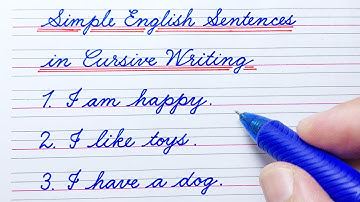 Simple English Sentences
in Cursive Writing
1. I am happy.
2. I like toys.
3. I have a dog.